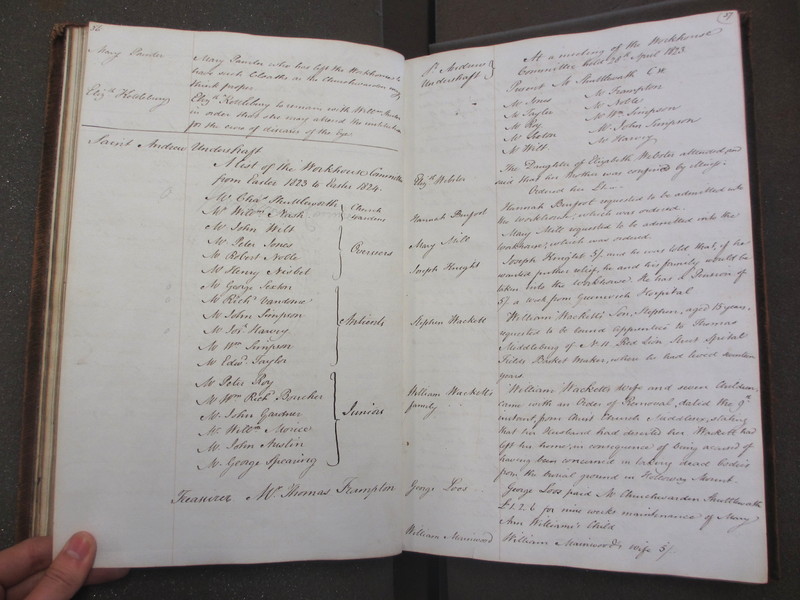 36
Mary Painter
Mary Painter who has left the Workhouse to
have such Cloaths as the Churchwarden may
think proper
Eliz:th Kettlebury
Eliz:th Kettlebury to remain with Will:m
in order that she may attend the
for the cure of disease of the
Saint Andrew Undershaft
A List of the Workhouse Committee
from Easter 1823 to Easter 1824.
Mr. Cha.s Shuttleworth
Mr. Will:m Nash
Church
wardens
Mr. John Wilt
Mr. Peter Jones
Mr. Robert Noble
Mr. Henry Nisbet
Overseers
Mr. George Sexton
Mr. Rich.d Vandome
Mr. John Simpson
Mr. Jos. Harvey
Mr. Wm. Simpson
Mr. Edw.d Taylor
Antients
Mr. Peter Roy
Mr. Wm. Rich.d Bourcher
Mr. John Gardner
Mr. Will:m Morice
Mr. John Austin
Mr. George Spearing
Juniors
Treasurer Mr. Thomas Frampton
37
St. Andrew
Undershaft
At a meeting of the Workhouse
Committee held 28th April 1823
Present Mr. Shuttleworth CW
Mr. Jones
Mr. Taylor
Mr. Roy
Mr. Sexton
Mr. Wilt
Mr. Frampton
Mr. Noble
Mr. Wm. Simpson
Mr. John Simpson
Mr. Harvey
Eliz.th Webster
The Daughter of Elizabeth Webster attended and
said that her Mother was confined by illness.
Ordered her
Hannah Penfoot
Hannah Penfoot requested to be admitted into
the workhouse; which was ordered.
Mary Mill
Mary Mill requested to be admitted into the
workhouse; which was ordered.
Joseph Knight
Joseph Knight 5/. and he was told that, if he
wanted further relief, he and his family would be
taken into the workhouse. He has a Pension of
5/. a week from Greenwich Hospital
Stephen Wackett
William Wackett's Son, Stephen, aged 15 years,
requested to be bound apprentice to Thomas
Middlebury of N. 11 Red Lion Street Spital
Fields Basket Maker, where he had lived
years.
William Wackett's
family
William Wackett's wife and seven children
came with an Order of Removal, dated the 9th
instant from Christ Church Middlesex, stating
that her Husband had deserted her. Wackett had
left his home, in consequence of being accused of
having been concerned in taking dead bodies
from the burial ground in Holloway Mount.
George Loos
George Loos paid Mr. Churchwarden Shuttleworth
£1.2.6 for nine weeks maintenance of Mary
Ann Williams's Child
William Mainwood
William Mainwood's wife 5/